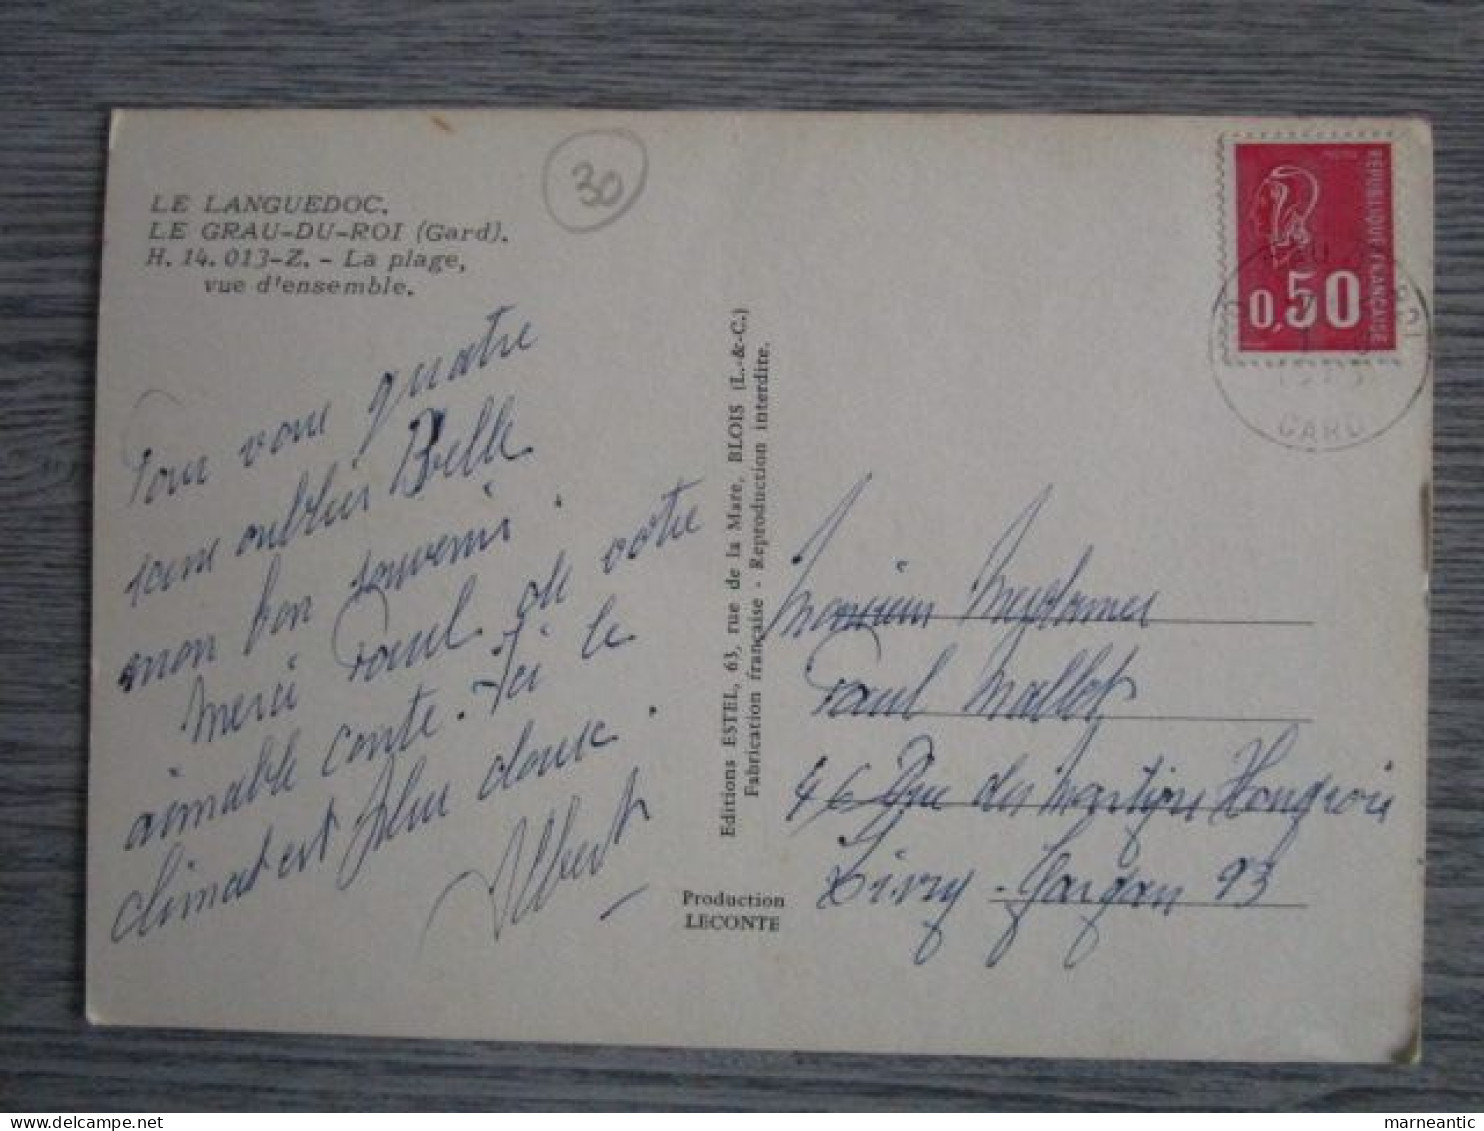 LE LANGUEDOC.
LE GRAU-DU-ROI (Gard).
H. 14. 013-Z. - La plage,
vue d'ensemble.
30
Pour vous quatre
sans oublier Belle
mon bon souvenir.
Merci Paul de votre
aimable carte. Ici le
climat est plus doux.
Albert
Editions ESTEL, 63, rue de la Mare, BLOIS (L.-&-C.)
Fabrication française - Reproduction interdite.
Production
LECONTE
REPUBLIQUE FRANÇAISE
0,50
GARD
Monsieur Mesdames
Paul Mallot
46 Rue des Martyrs Hongrois
Livry-Gargan 93
marneantic